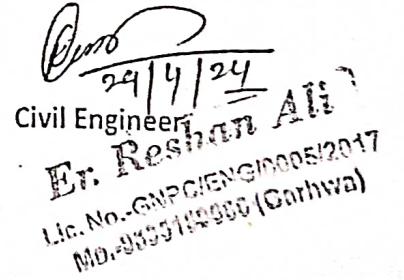 29/4/24
Civil Engineer
Er. Reshan Ali
Lic. No.-GNPC/ENG/0005/2017
(Garhwa)